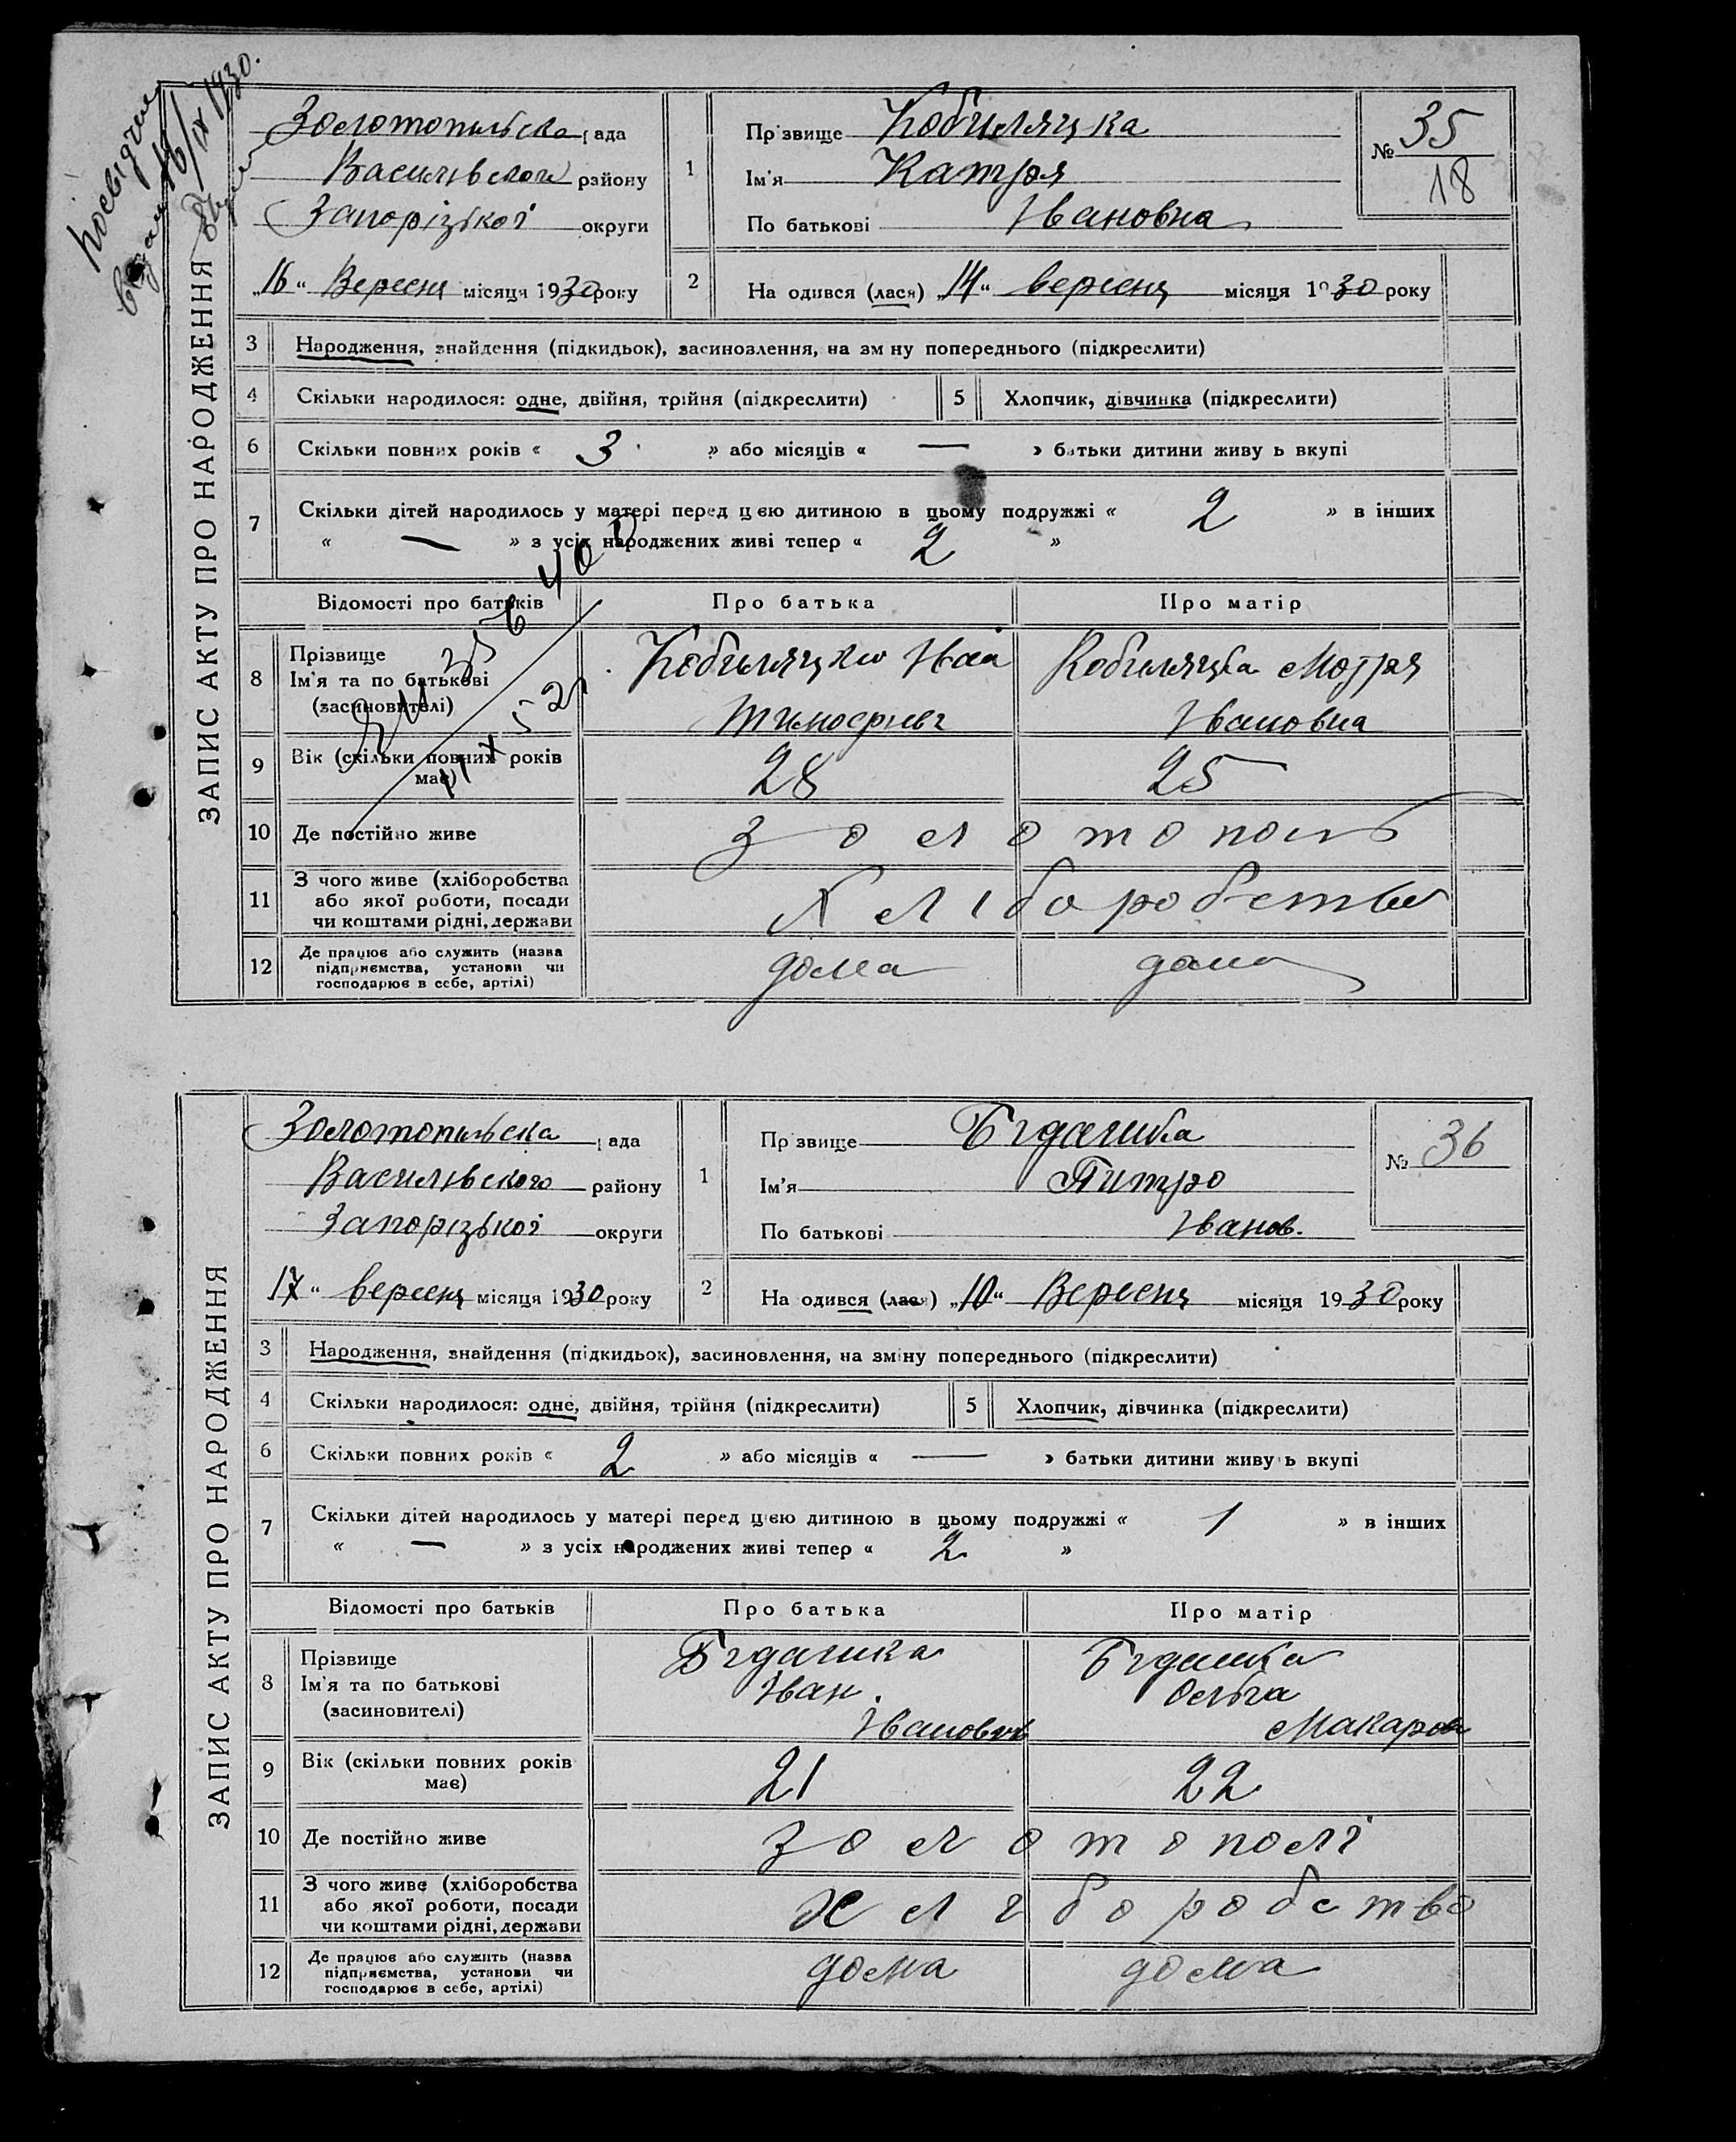 ЗАПИС АКТУ ПРО НАРОДЖЕННЯ
Золотопильска рада
Василівского району
Запорізької округи
„16“ Вересня місяця 1930 року
1
Прізвище Кобиляцка
Ім'я Катря
По батькові Івановна
№ 35
18
2
На одився (лася) „14“ вересня місяця 1930 року
3 Народження, знайдення (підкидьок), засиновлення, на зміну попереднього (підкреслити)
4 Скільки народилося: одне, двійня, трійня (підкреслити)
5 Хлопчик, дівчинка (підкреслити)
6 Скільки повних років « 3 » або місяців « — » батьки дитини живуть вкупі
7 Скільки дітей народилось у матері перед цією дитиною в цьому подружжі « 2 » в інших
« — » з усіх народжених живі тепер « 2 »
Відомості про батьків Про батька Про матір
8 Прізвище
Ім'я та по батькові
(засиновителі)
Кобиляцкий Іван
Кобиляцка Мотря
Івановна
9 Вік (скільки повних років має) 28 25
10 Де постійно живе золотополь
11 З чого живе (хліборобства
або якої роботи, посади
чи коштами рідні, держави
Хліборобство
12 Де працює або служить (назва
підприємства, установи чи
господарює в себе, артілі)
дома дома
ЗАПИС АКТУ ПРО НАРОДЖЕННЯ
Золотопильска рада
Василівского району
Запорізької округи
17“ вересня місяця 1930 року
1
Прізвище Бідашка
Ім'я Питро
По батькові Іванов.
№ 36
2
На одився (лася) „10“ Вересня місяця 1930 року
3 Народження, знайдення (підкидьок), засиновлення, на зміну попереднього (підкреслити)
4 Скільки народилося: одне, двійня, трійня (підкреслити)
5 Хлопчик, дівчинка (підкреслити)
6 Скільки повних років « 2 » або місяців « — » батьки дитини живуть вкупі
7 Скільки дітей народилось у матері перед цією дитиною в цьому подружжі « 1 » в інших
« — » з усіх народжених живі тепер « 2 »
Відомості про батьків Про батька Про матір
8 Прізвище
Ім'я та по батькові
(засиновителі)
Бідашка
Іван
Іванович
Бідашка
Ольга
Макаров
9 Вік (скільки повних років має) 21 22
10 Де постійно живе золотополі
11 З чого живе (хліборобства
або якої роботи, посади
чи коштами рідні, держави
хліборобство
12 Де працює або служить (назва
підприємства, установи чи
господарює в себе, артілі)
дома дома